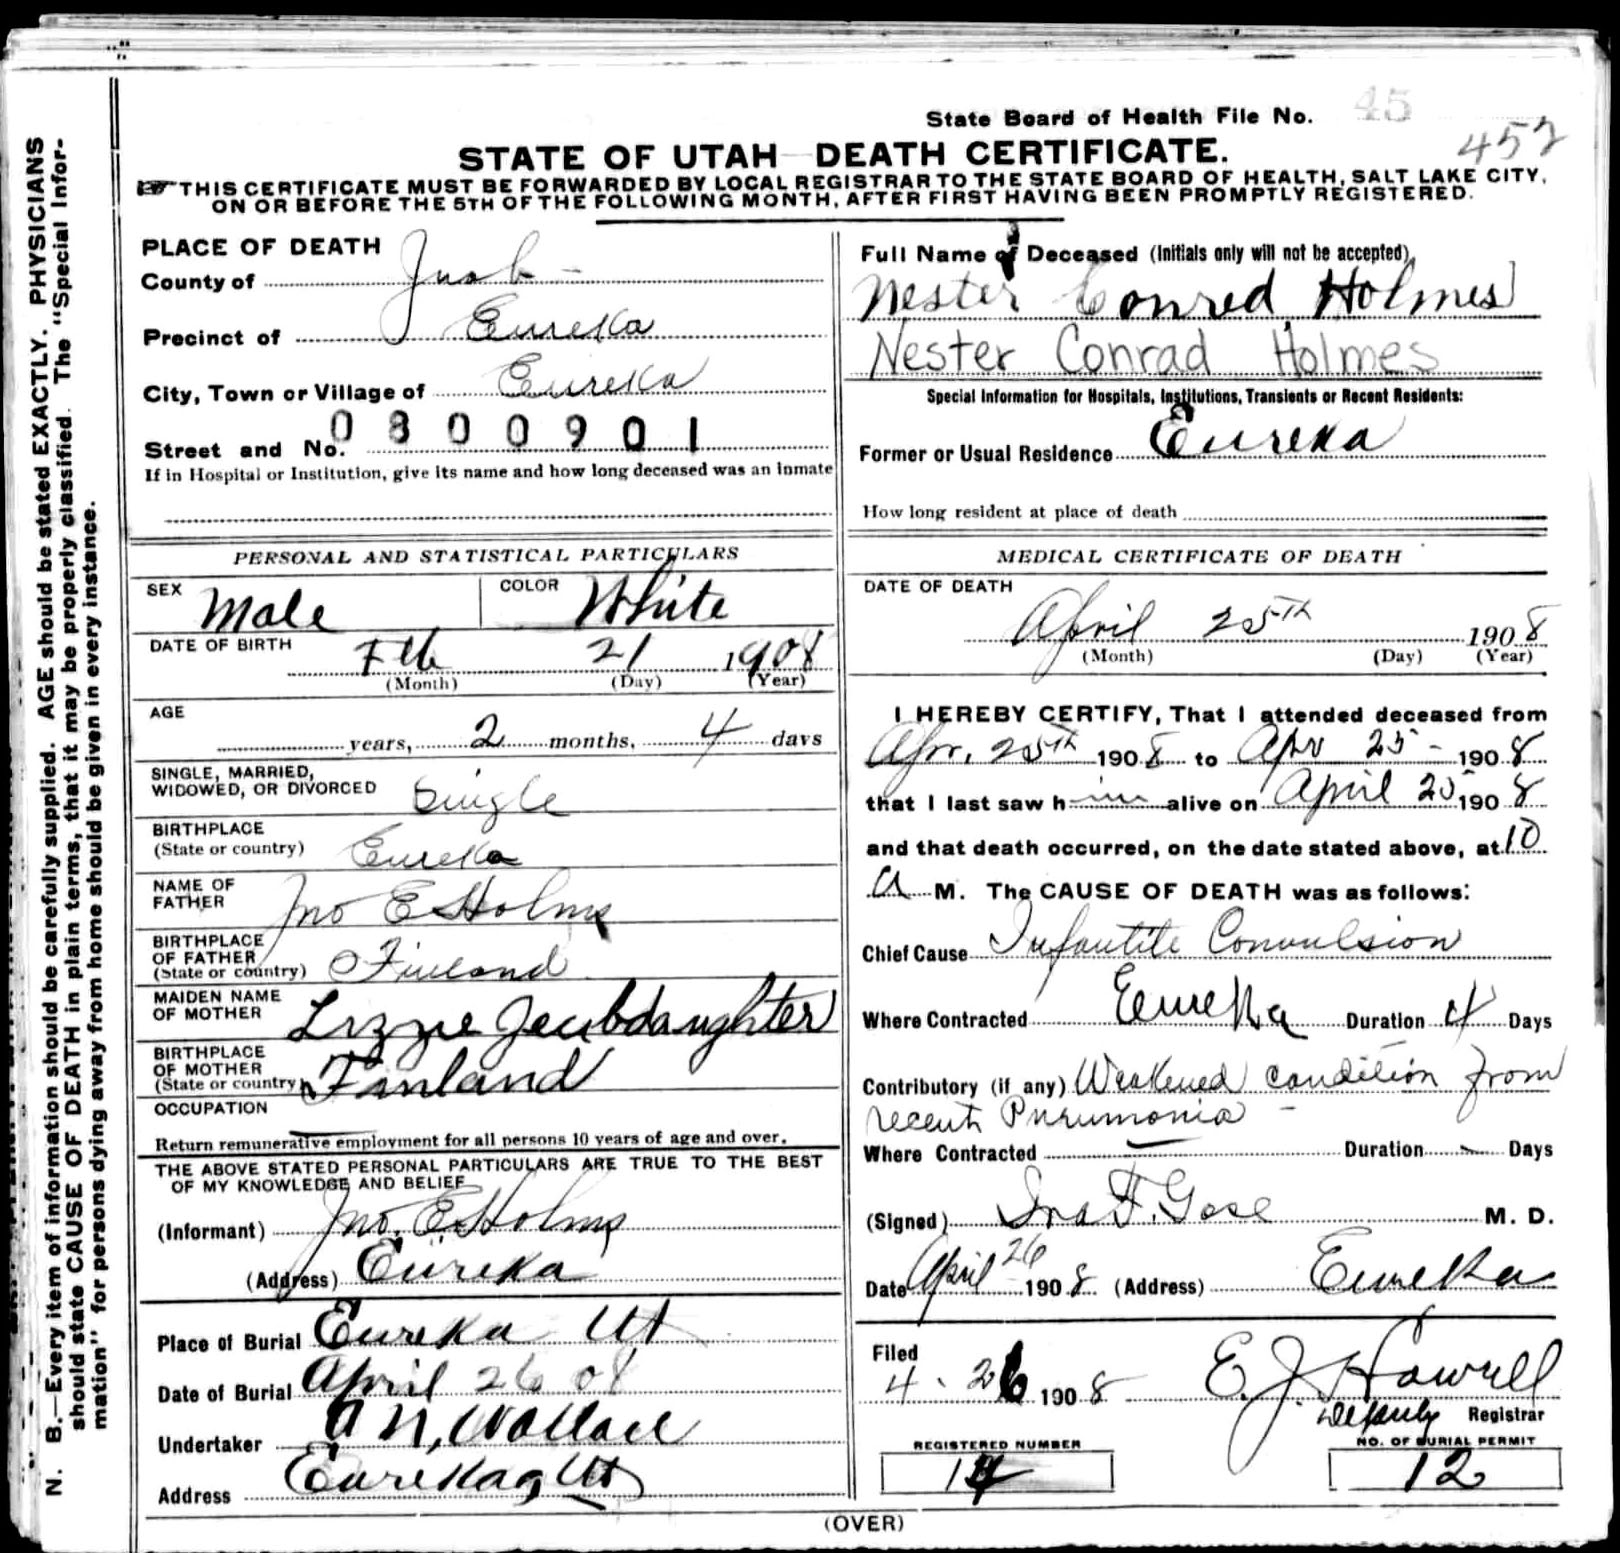 State Board of Health File No. 45
452
STATE OF UTAH DEATH CERTIFICATE.
THIS CERTIFICATE MUST BE FORWARDED BY LOCAL REGISTRAR TO THE STATE BOARD OF HEALTH, SALT LAKE CITY,
ON OR BEFORE THE 5TH OF THE FOLLOWING MONTH, AFTER FIRST HAVING BEEN PROMPTLY REGISTERED.
N. B.—Every item of information should be carefully supplied. AGE should be stated EXACTLY. PHYSICIANS
should state CAUSE OF DEATH in plain terms, that it may be properly classified. The "Special Infor-
mation" for persons dying away from home should be given in every instance.
PLACE OF DEATH
County of Juab
Precinct of Eureka
City, Town or Village of Eureka
Street and No. 0800901
If in Hospital or Institution, give its name and how long deceased was an inmate
PERSONAL AND STATISTICAL PARTICULARS
SEX Male COLOR White
DATE OF BIRTH Feb 21 1908
(Month) (Day) (Year)
AGE
years, 2 months, 4 days
SINGLE, MARRIED,
WIDOWED, OR DIVORCED Single
BIRTHPLACE
(State or country) Eureka
NAME OF
FATHER Jno E Holms
BIRTHPLACE
OF FATHER
(State or country) Finland
MAIDEN NAME
OF MOTHER Lizzie Jacobdaughter
BIRTHPLACE
OF MOTHER
(State or country) Finland
OCCUPATION
Return remunerative employment for all persons 10 years of age and over.
THE ABOVE STATED PERSONAL PARTICULARS ARE TRUE TO THE BEST
OF MY KNOWLEDGE AND BELIEF
(Informant) Jno. E. Holms
(Address) Eureka
Place of Burial Eureka Ut
Date of Burial April 26 08
Undertaker A N, Wallace
Address Eureka, Ut
Full Name of Deceased (Initials only will not be accepted)
Nester Conred Holmes
Nester Conrad Holmes
Special Information for Hospitals, Institutions, Transients or Recent Residents:
Former or Usual Residence Eureka
How long resident at place of death
MEDICAL CERTIFICATE OF DEATH
DATE OF DEATH
April 25th 1908
(Month) (Day) (Year)
I HEREBY CERTIFY, That I attended deceased from
Apr. 25th 1908 to Apr 25 - 1908
that I last saw h im alive on April 25 1908
and that death occurred, on the date stated above, at 10
a M. The CAUSE OF DEATH was as follows:
Chief Cause Infantile Convulsion
Where Contracted Eureka Duration 4 Days
Contributory (if any) Weakened condition from
recent Pneumonia -
Where Contracted — Duration — Days
(Signed) Ira F. Gose M. D.
Date April 26 1908 (Address) Eureka
Filed
4 . 26 1908 E. J. Howell
Deputy Registrar
REGISTERED NUMBER
14
NO. OF BURIAL PERMIT
12
(OVER)